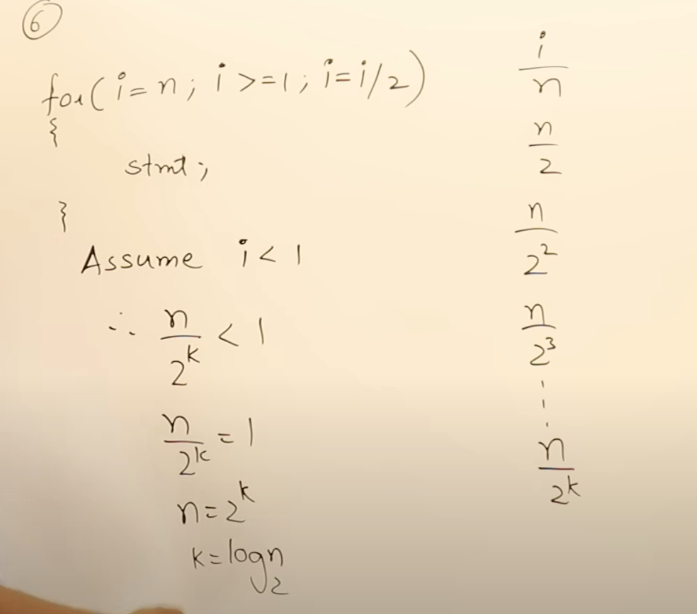 6
for(i=n; i>=1; i=i/2)
{
stmt;
}
Assume i<1
∴ n/2^k < 1
n/2^k = 1
n=2^k
k=log₂n
i
n
n/2
n/2^2
n/2^3
⋮
n/2^k